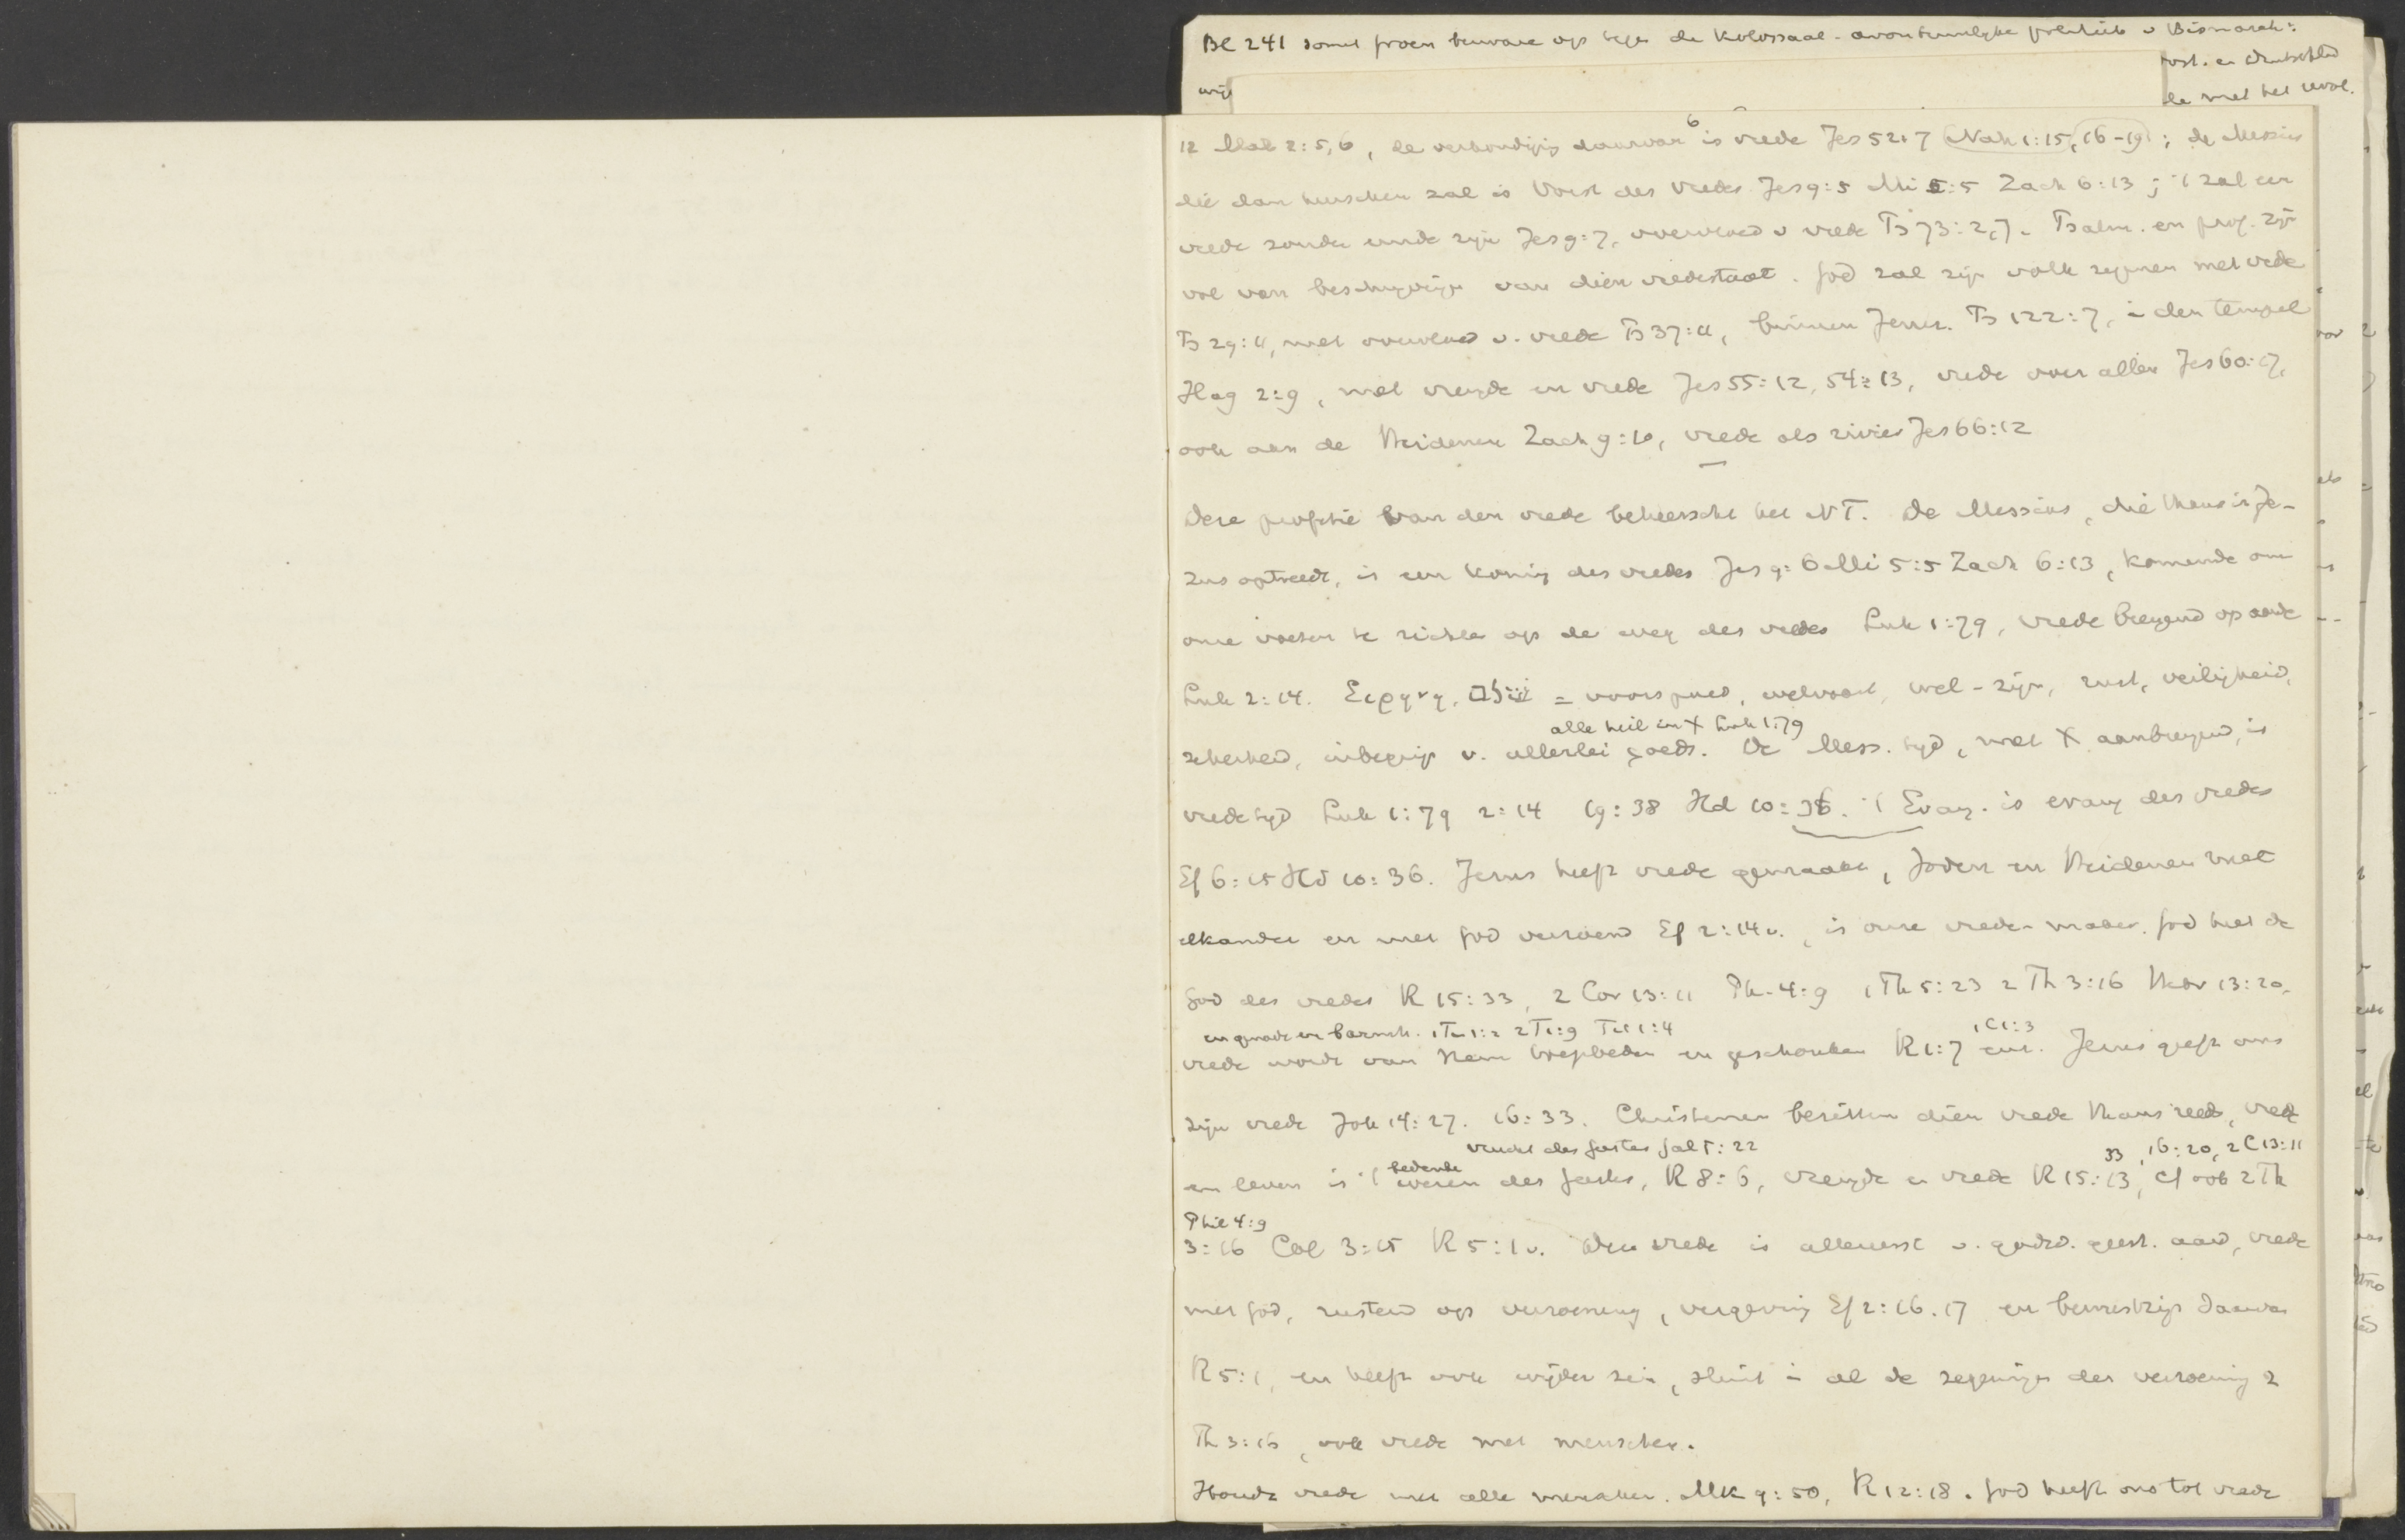 Bl 241 somt proen bewaren op tegen de Kolossaal-avontuurlijke politiek v Bismarck:
oost. en Deutschld
wijs
de met het revol.
12 Mal 2:5,6, de verkondiging daarvan is vrede Jes 52:7 Nah 1:15, 16-19; de Messias
die dan heerschen zal is Vorst des Vredes Jes 9:5 Mi 5:5 Zach 6:13; 't zal een
vrede zonder einde zijn Jes 9:7, overvloed v vrede Ps 73:2,7. Psalm. en prof. zijn
vol van beschrijvingen van dien vredestaat. God zal zijn volk zegenen met vrede
Ps 29:11, met overvloed v. vrede Ps 37:11, binnen Jerus. Ps 122:7, in den tempel
Hag 2:9, met vreugde en vrede Jes 55:12, 54:13, vrede over allen Jes 60:17,
ook aan de Heidenen Zach 9:10, vrede als rivier Jes 66:12
Deze profetie van den vrede beheerscht het NT. De Messias, die thans in Je-
zus optreedt, is een koning des vredes Jes 9:6 Mi 5:5 Zach 6:13, komende om
onze voeten te richten op de weg des vredes Luk 1:79, vrede brengend op aarde
Luk 2:14. Εἰρηνη, שלום = voorspoed, welvaart, wel-zijn, rust, veiligheid,
alle heil in X Luk 1:79
zekerheid, inbegrip v. allerlei goeds. De Mess. tijd, met X aanbrengend, is
vredetijd Luk 1:79 2:14 19:38 Hd 10:36. 't Evang. is evang des vredes
Ef 6:15 Hd 10:36. Jezus heeft vrede gemaakt, Joden en Heidenen met
elkander en met God verzoend Ef 2:14v., is onze vrede-maker. God heet de
God des vredes R 15:33, 2 Cor 13:11 Ph. 4:9 1 Th 5:23 2 Th 3:16 Hebr 13:20.
en genade en barmh. 1 Ti 1:2 2 T 1:9 Tit 1:4 1 C 1:3
vrede wordt van Hem toegebeden en geschonken R 1:7 enz. Jezus geeft ons
zijn vrede Joh 14:27. 16:33. Christenen bezitten dien vrede thans reeds, vrede
vrucht des Geestes Gal 5:22 33, 16:20, 2 C 13:11
en leven is 't bedenken des Geestes, R 8:6, vreugde en vrede R 15:13, cf ook 2 Th
Phil 4:9
3:16 Col 3:15 R 5:1 v. Deze vrede is allereerst v. godsd. geest. aard, vrede
met God, rustend op verzoening, vergeving Ef 2:16.17 en bewustzijn daarvan
R 5:1, en heeft ook wijder zin, sluit in al de zegeningen der verzoening 2
Th 3:16, ook vrede met menschen.
Houdt vrede met alle menschen. Mk 9:50, R 12:18. God heeft ons tot vrede